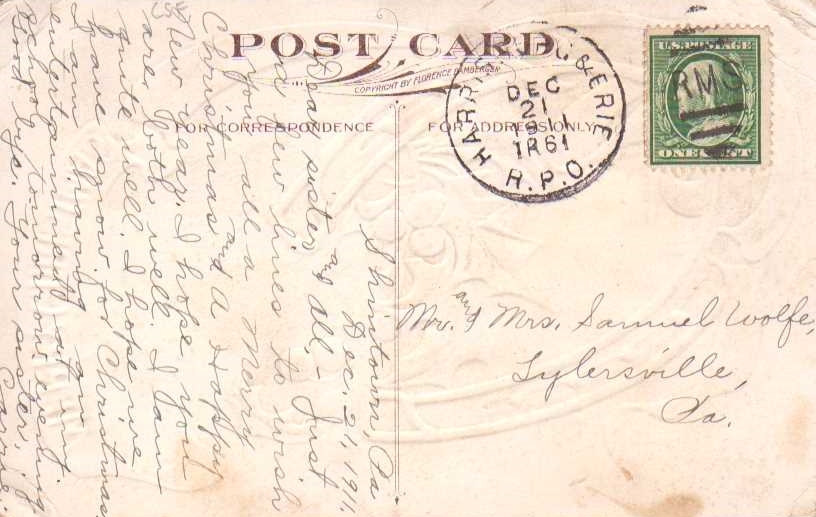 POST CARD
COPYRIGHT BY FLORENCE BAMBERGER
FOR CORRESPONDENCE
FOR ADDRESS ONLY
HARRISBURG & ERIE
DEC
21
1911
TR61
R.P.O.
RMS
U.S. POSTAGE
ONE CENT
Mr. and Mrs. Samuel Wolfe,
Tylersville,
Pa.
Shintown, Pa
Dec. 21, 1911,
Dear sister and all,- Just
a few lines to wish
you all a Merry
Christmas and A Happy
New year. I hope you
are both well. I am
quite well. I hope we
have snow for Christmas
I am having an
entertainment at my
school tomorrow evening
Good bye. Your sister,
Carrie.